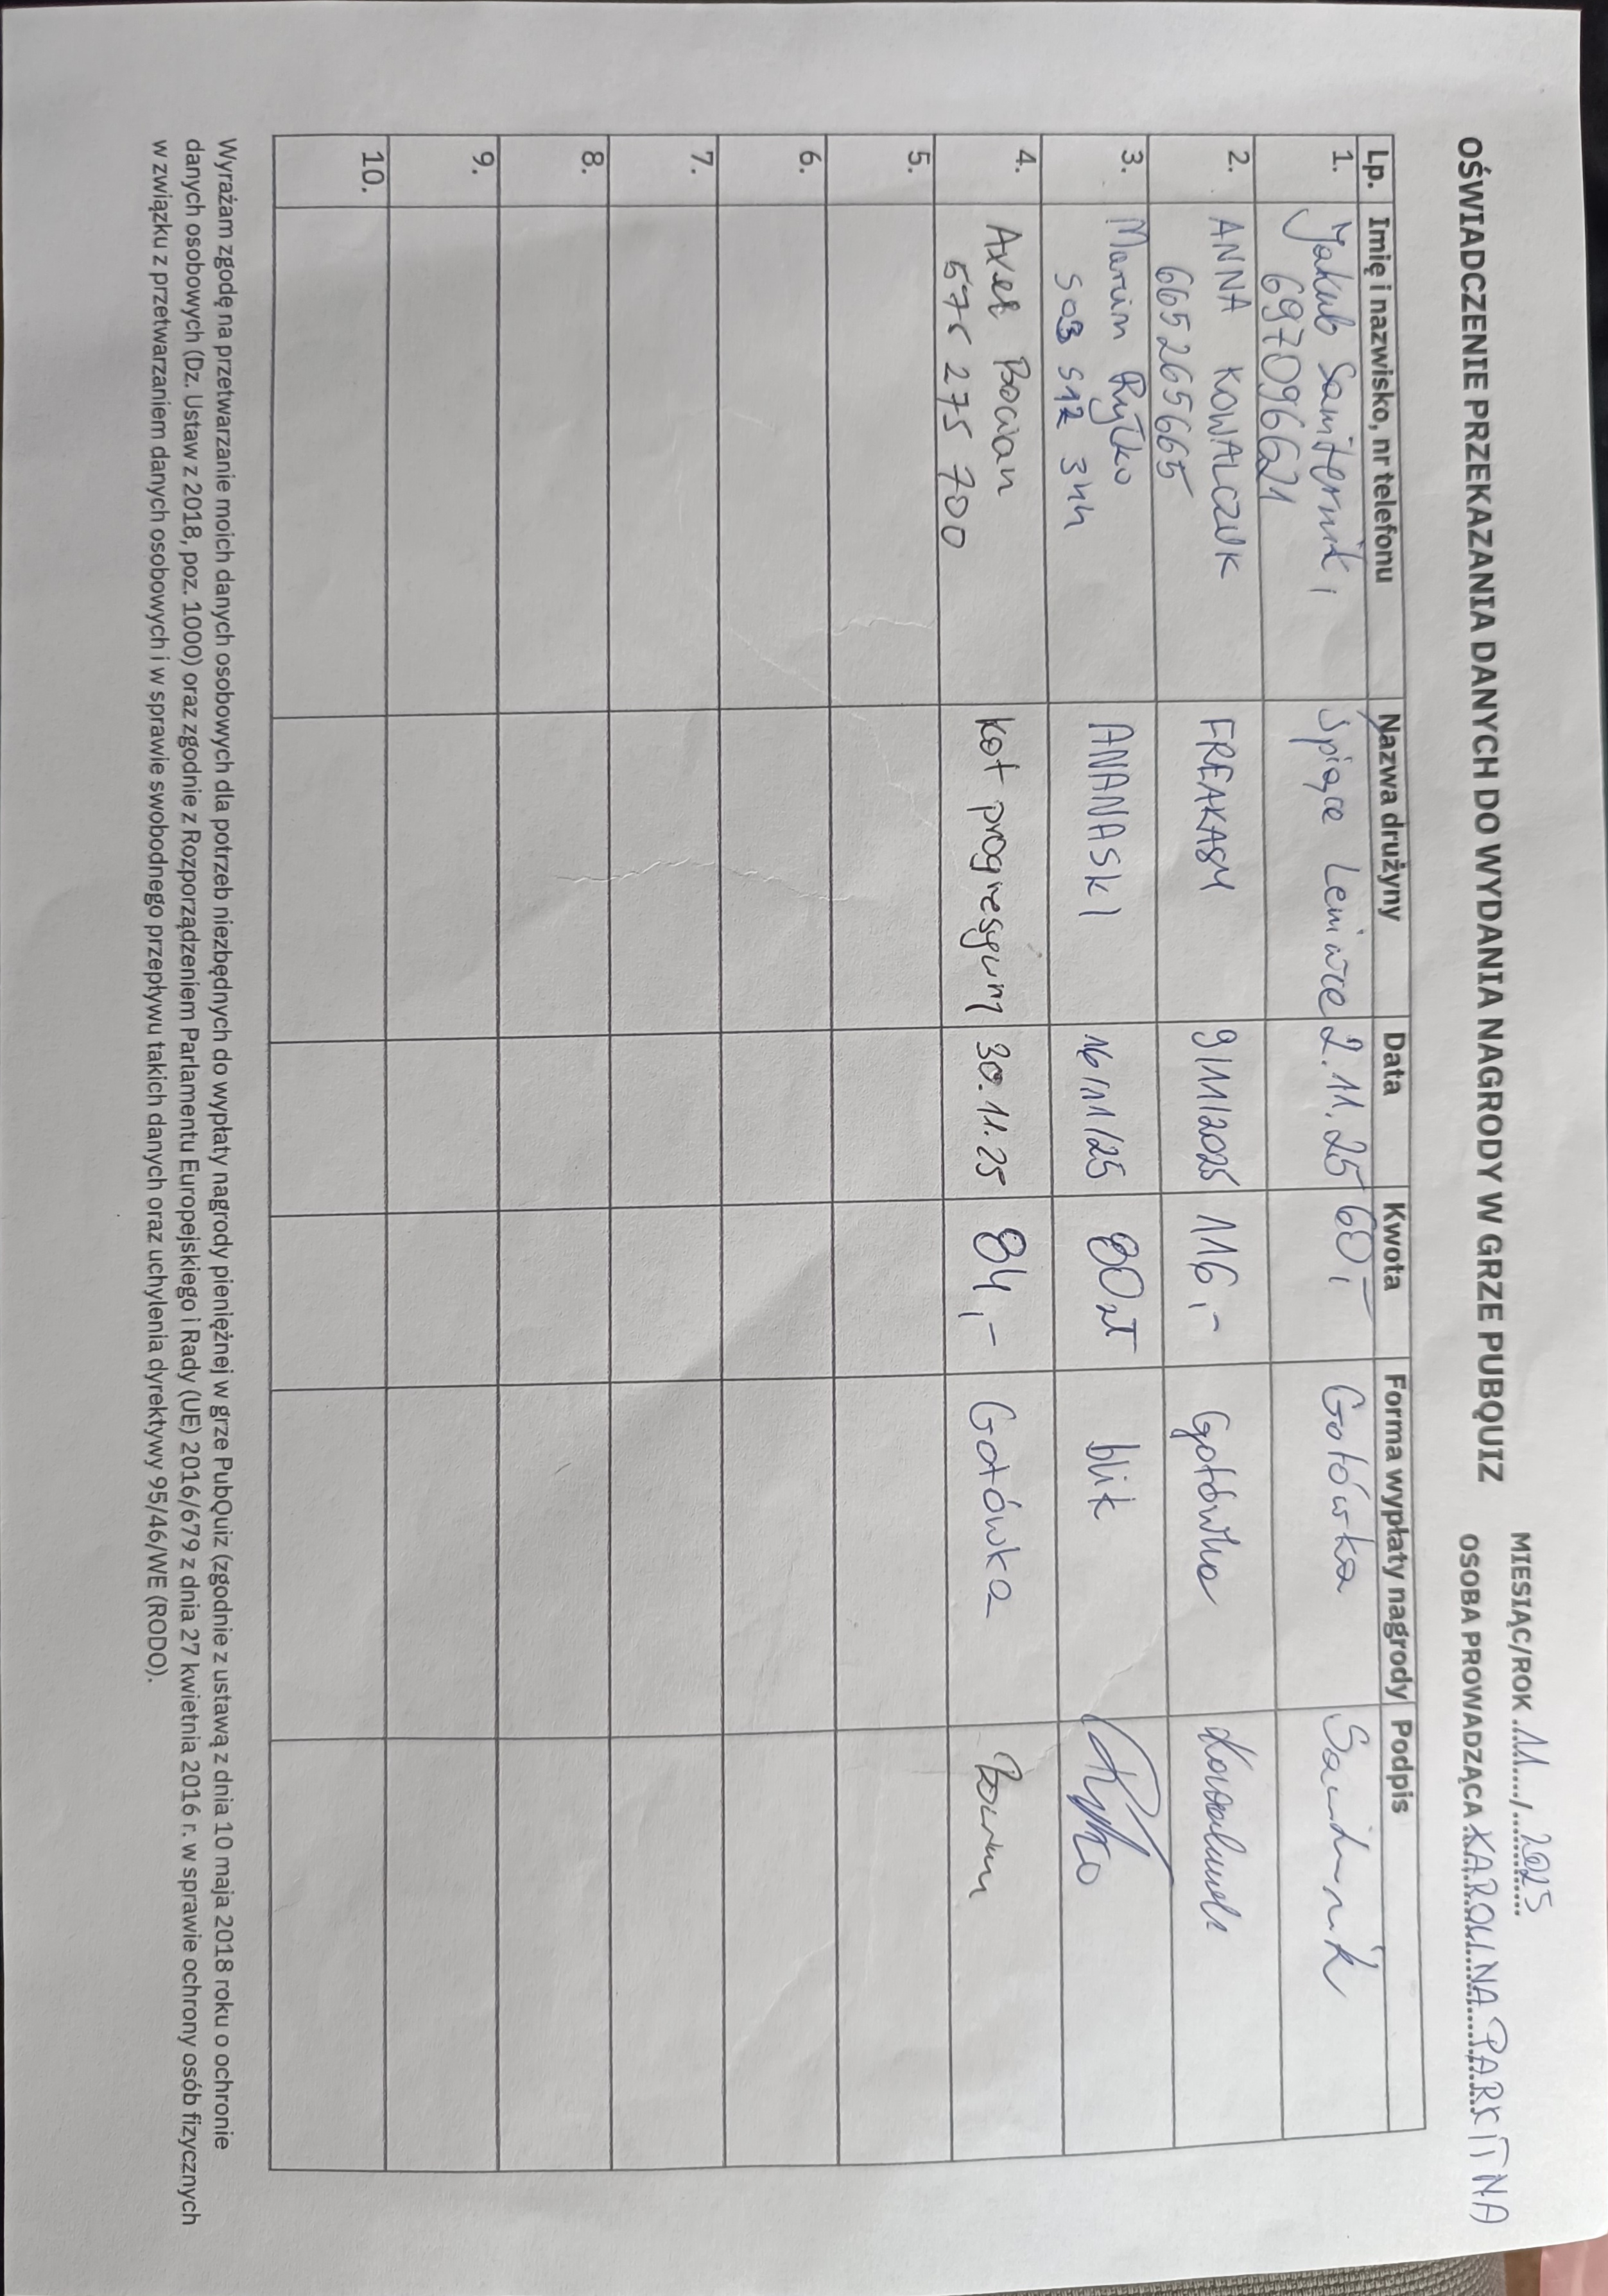 MIESIĄC/ROK 11 / 2025
OŚWIADCZENIE PRZEKAZANIA DANYCH DO WYDANIA NAGRODY W GRZE PUBQUIZ
OSOBA PROWADZĄCA KAROLINA PARKITNA
Lp. Imię i nazwisko, nr telefonu Nazwa drużyny Data Kwota Forma wypłaty nagrody Podpis
1. Jakub Śpiące Leniwce 2.11.25 60,- Gotówka
697096621
2. ANNA KOWALCZUK FREAKASY 9/11/2025 116,- Gotówka
665265665
3. Marcin Ryłko ANANASKI 16/11/25 80zł blik Ryłko
503 512 344
4. Axel Bocian kot progresywny 30.11.25 84,- Gotówka Bocian
575 275 700
5.
6.
7.
8.
9.
10.
Wyrażam zgodę na przetwarzanie moich danych osobowych dla potrzeb niezbędnych do wypłaty nagrody pieniężnej w grze PubQuiz (zgodnie z ustawą z dnia 10 maja 2018 roku o ochronie
danych osobowych (Dz. Ustaw z 2018, poz. 1000) oraz zgodnie z Rozporządzeniem Parlamentu Europejskiego i Rady (UE) 2016/679 z dnia 27 kwietnia 2016 r. w sprawie ochrony osób fizycznych
w związku z przetwarzaniem danych osobowych i w sprawie swobodnego przepływu takich danych oraz uchylenia dyrektywy 95/46/WE (RODO).